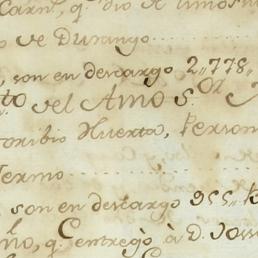 Carn, q. dio de limosn
o de Durango
, son en descargo 2,,778,,
to del Amo s.or
oribio Huerta, Person
fermo
, son en descargo 955,,
lo, q. entregò à D. Jos